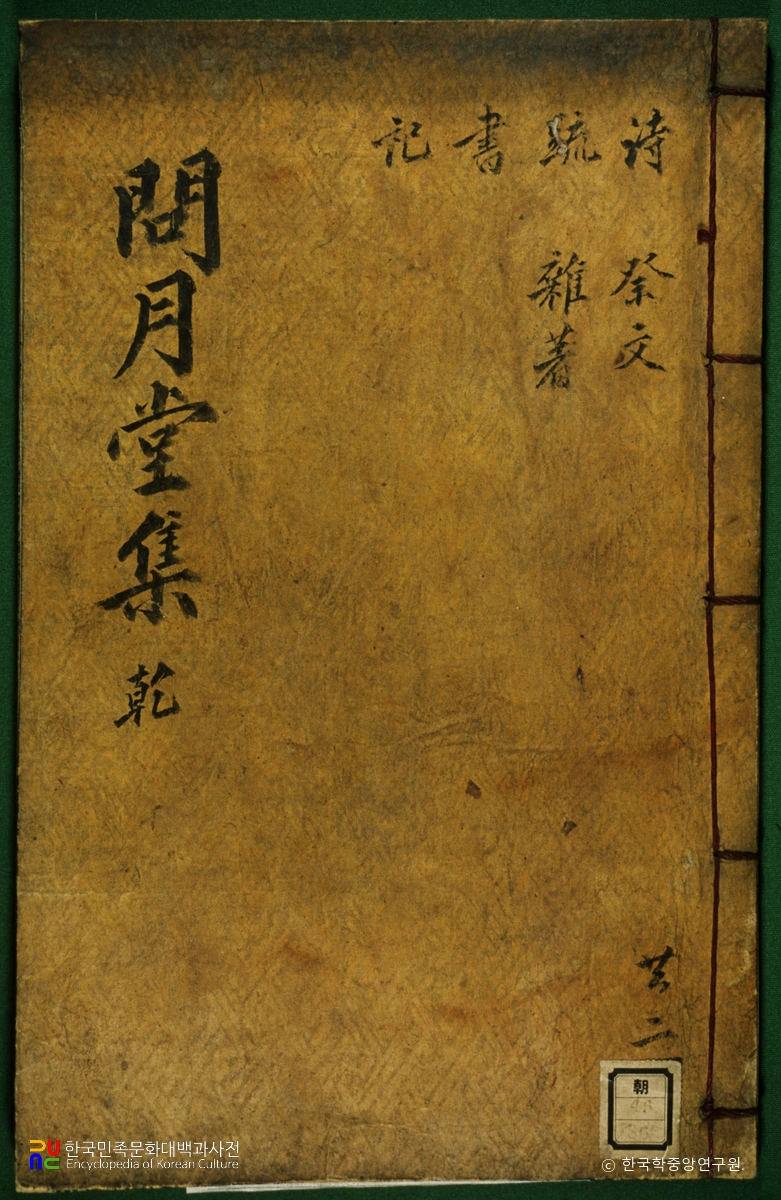 詩 祭文
疏 雜著
書
記
問月堂集 乾
共二
朝
한국민족문화대백과사전
Encyclopedia of Korean Culture
ⓒ 한국학중앙연구원.